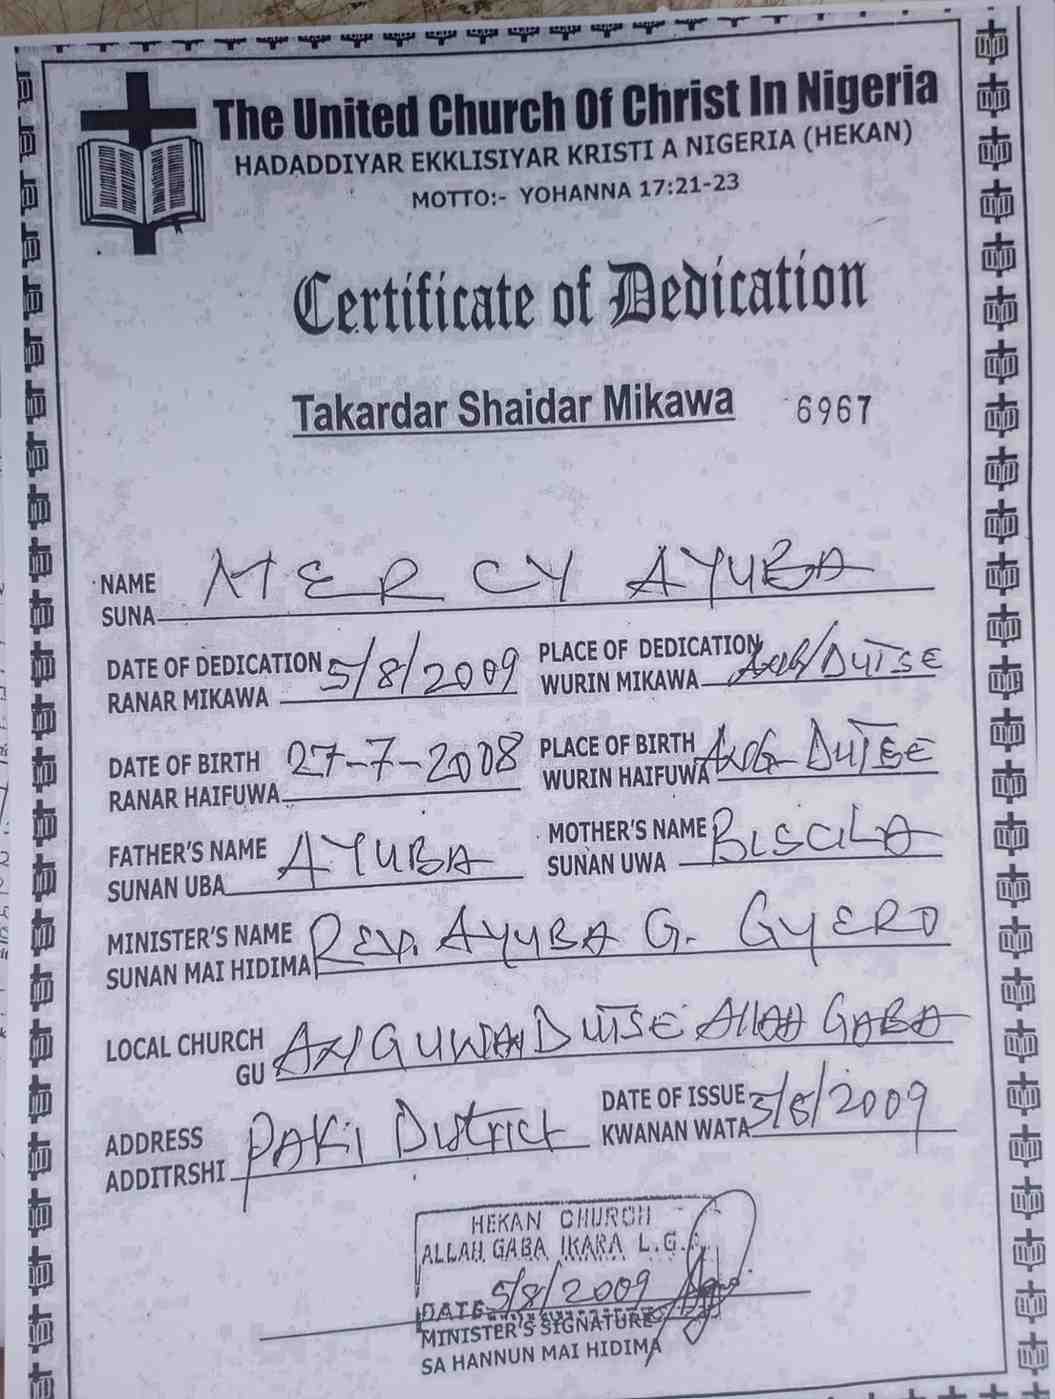 The United Church Of Christ In Nigeria
HADADDIYAR EKKLISIYAR KRISTI A NIGERIA (HEKAN)
MOTTO:- YOHANNA 17:21-23
Certificate of Dedication
Takardar Shaidar Mikawa 6967
NAME MERCY AYUBA
SUNA
DATE OF DEDICATION 5/8/2009 PLACE OF DEDICATION DUTSE
RANAR MIKAWA WURIN MIKAWA
DATE OF BIRTH 27-7-2008 PLACE OF BIRTH DUTSE
RANAR HAIFUWA WURIN HAIFUWA
FATHER'S NAME AYUBA MOTHER'S NAME BISCILA
SUNAN UBA SUNAN UWA
MINISTER'S NAME REV. AYUBA G. GYERO
SUNAN MAI HIDIMA
LOCAL CHURCH DUTSE ALLAH GABA
GU
ADDRESS PAKI District DATE OF ISSUE /2009
ADDITRSHI KWANAN WATA
HEKAN CHURCH
ALLAH GABA IKARA L.G.A
DATE 5/8/2009
MINISTER'S SIGNATURE
SA HANNUN MAI HIDIMA